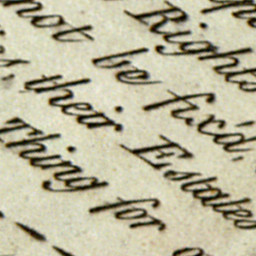 Rights
not be fix'd,
their Estates
Thing for